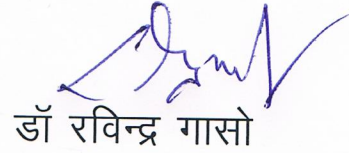 डॉ रविन्द्र गासो